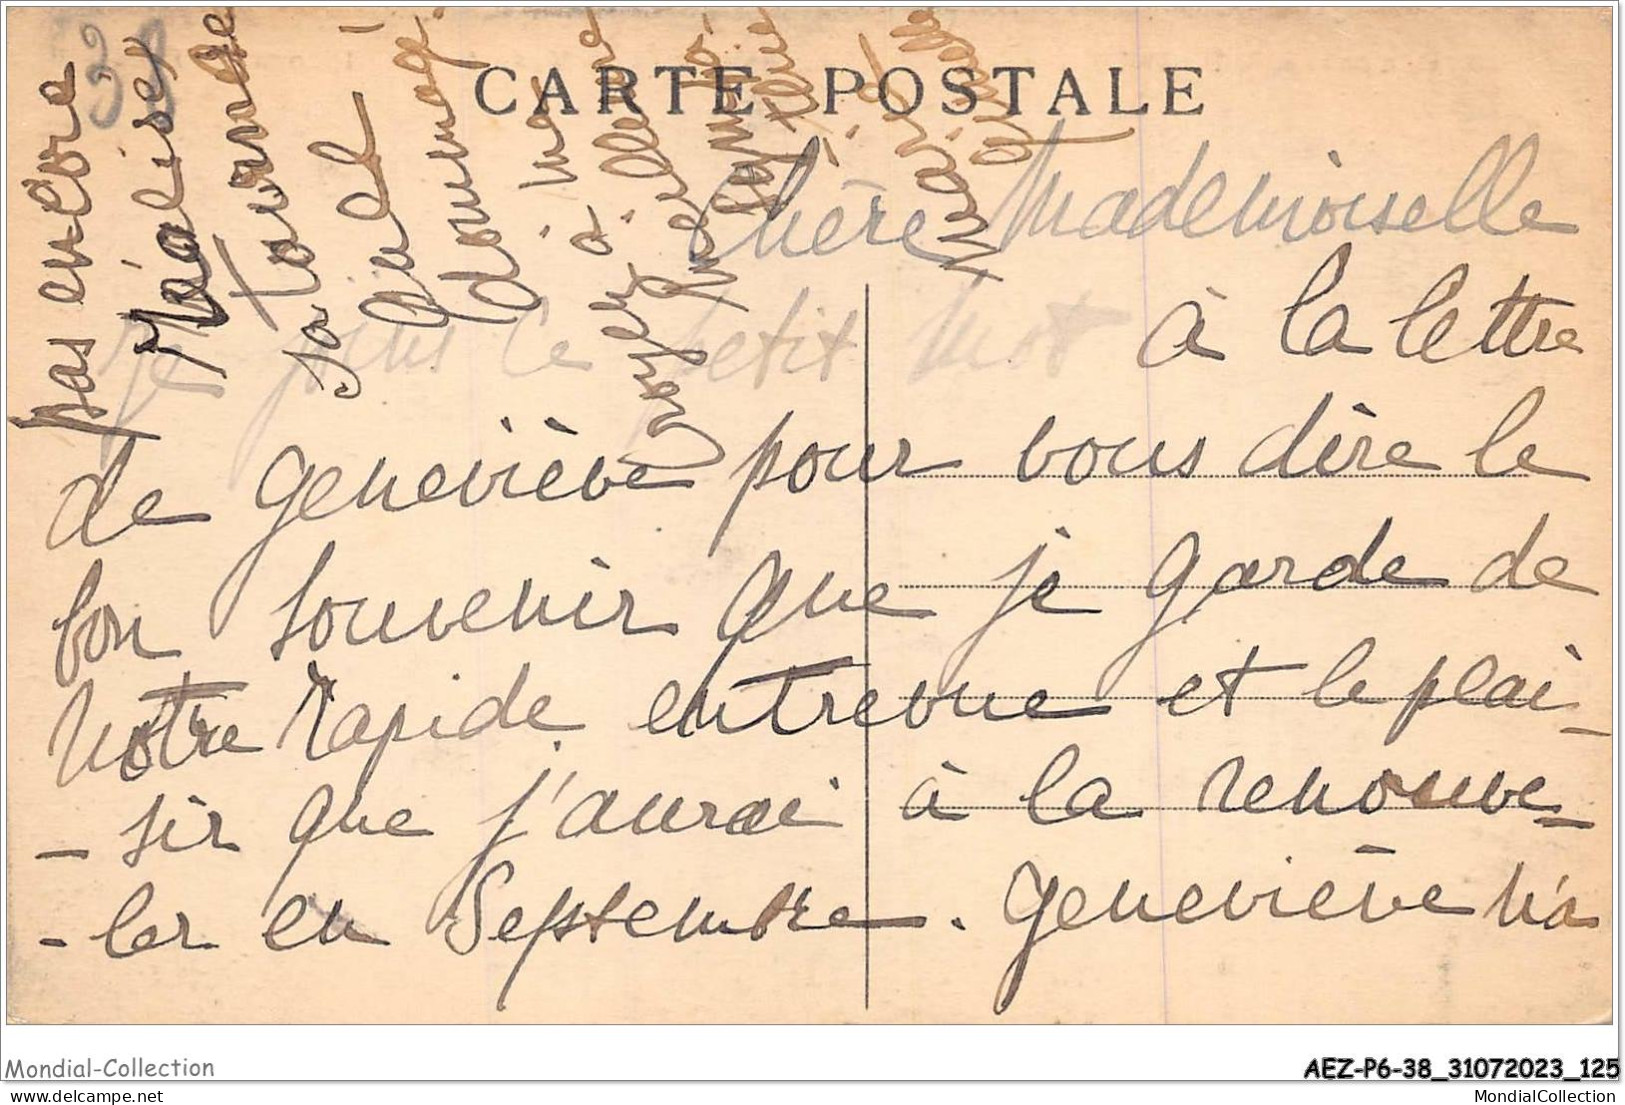 CARTE POSTALE
Chère Mademoiselle
Je joins ce petit mot à la lettre
de Geneviève pour vous dire le
bon souvenir que je garde de
votre rapide entrevue et le plai-
- sir que j'aurai à la renouve-
- ler en Septembre. Geneviève n'a
pas encore
réalisé
sa tout
à une
à
Mondial-Collection
AEZ-P6-38_31072023_125
delcampe.net
MondialCollection